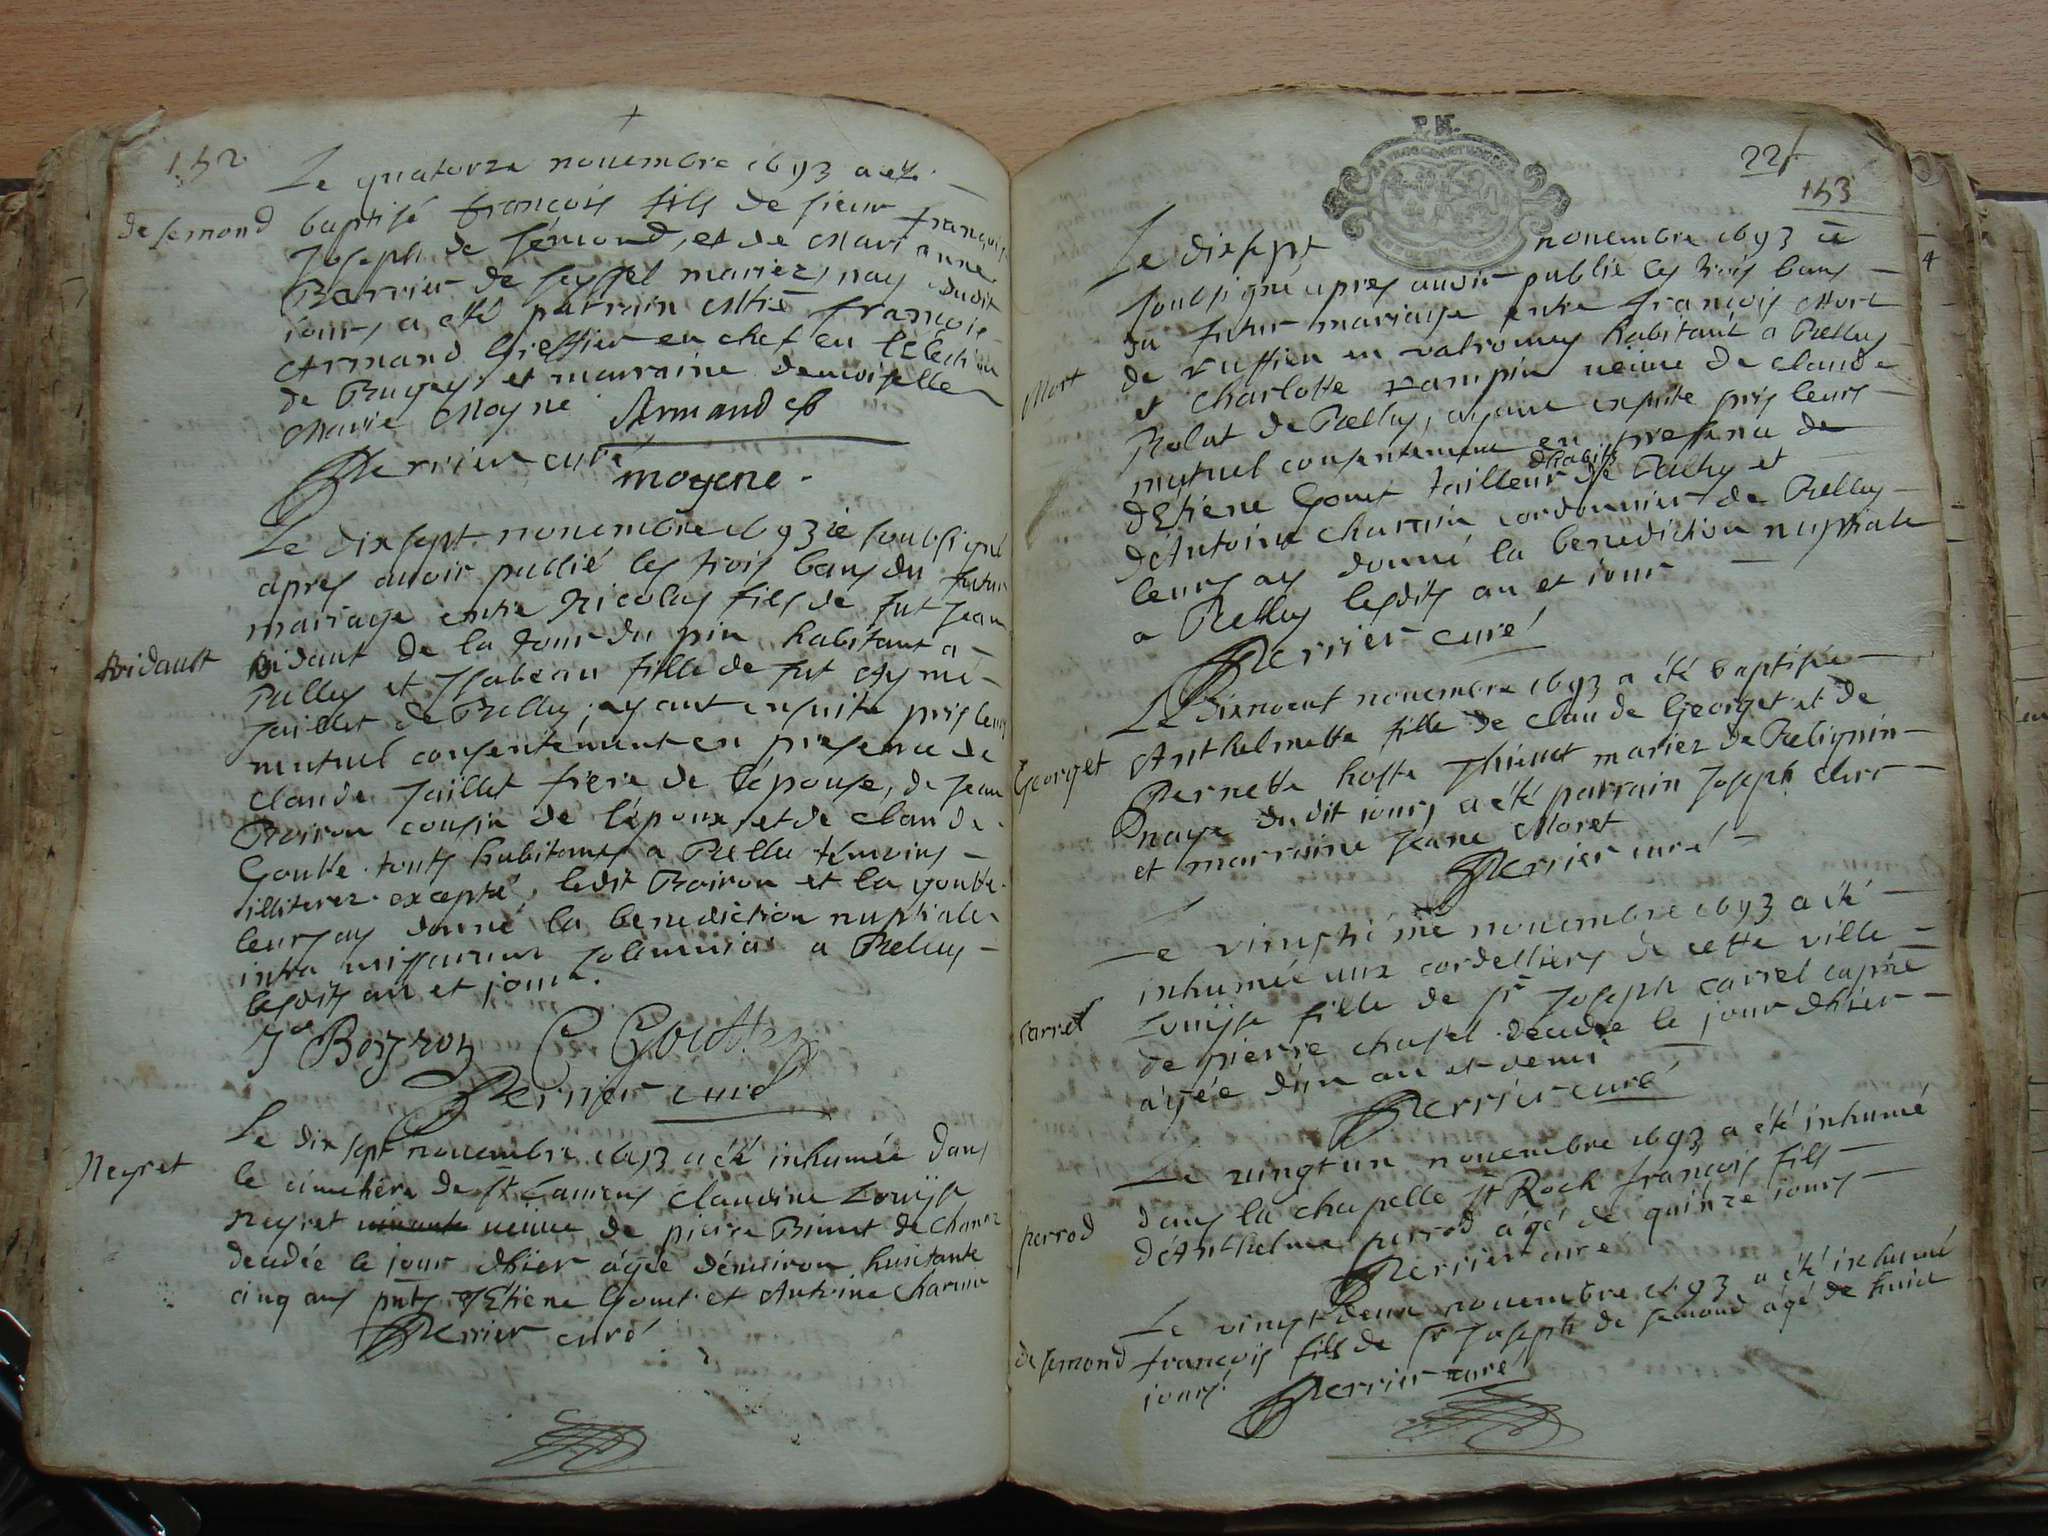 152
Le quatorze nouembre 1693 a eté
de semond
baptisé françois fils de sieur françois
Joseph de Sémond, et de Marianne
Berrier de Seyssel mariez, nay dudit
jour, a eté patrain françois
Armand Greffier en chef en l'election
de Bugey et marraine demoiselle
Marie Moyne
Armand
Perrier curé
moyene.
Le dixsept nouembre 1693 ie soubsigné
apres auoir publié les trois bans du futur
mariage entre Nicolas fils de fut Jean
Bidault
Bidaut de la tour du pin habitant a
Belley et Isabeau fille de fut Aymé
Jaillet de Belley; ayant ensuite pris leurs
mutuel consentement en presence de
claude Jaillet frere de l'épouse, de Jean
Boiron cousin de l'époux, et de claude
Goutte touts habitants a Belley temoins
illiterez excepté ledit Boiron et la goutte
leurs ay donné la benediction nuptiale
intra missarum solemnia a Belley
lesdits an et jour.
Boyron C Goutte
Perrier curé
Le dix sept nouembre 1693 a été inhumée dans
Neyret
le cimetiere de st Laurens claudine Louyse
neyret veuue de pierre Binet de
decedée le jour dhier agée démuiron huictante
cinq ans pnts Etiene Gonet et Antoine Charuin
Perrier curé
P.N.
22
153
Le dixsept nouembre 1693 ie
soubsigné apres auoir publié les trois bans
du futur mariage entre françois Mort
Mort
de ruffieu en valromey habitant a Belley
et charlotte rampin veuue de claude
Rolat de Belley, ayant ensuite pris leurs
mutuel consentement en pressence de
d'Etiene Gonet tailleur d'habits de Belley et
d'Antoine charuin cordonnier de Belley
leurs ay donné la benediction nuptiale
a Belley lesdits an et iour
Perrier curé
Le dixneuf nouembre 1693 a été baptisée
Anthelmette fille de claude Georget et de
Georget
Pernette hoste mariez de Belignin
naye dudit iour, a été parrain Joseph
et marraine Jeane Moret
Perrier curé
Le vingtiéme nouembre 1693 a été
inhumée aux cordelliers de cette ville
Carrel
Louyse fille de sr Joseph carrel
de pierre chastel decedée le jour dhier
agée d'un an et demi
Perrier curé
Le vingtun nouembre 1693 a été inhumé
dans la chapelle st Roch françois fils
perrod
d'Anthelme perrod agé de quinze iours
Perrier curé
Le vingtdeux nouembre 1693 a été inhumé
de semond
françois fils de sr Joseph de semond agé de huict
jours.
Perrier curé